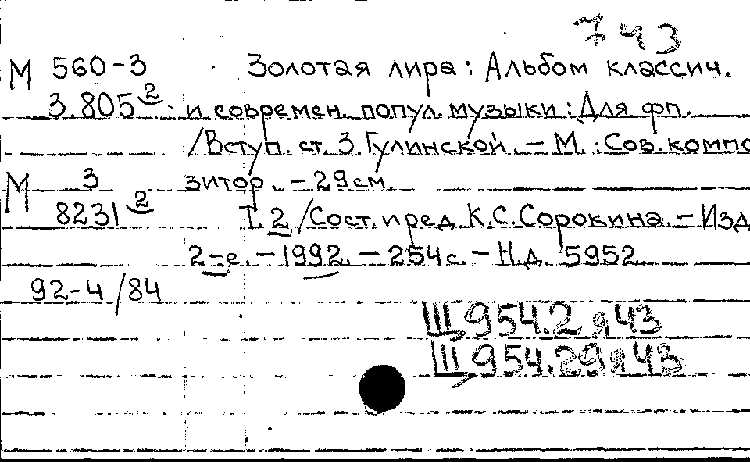 743
М 560-3 Золотая лира: Альбом классич.
3.805 2 и современ. попул. музыки: Для фп.
/Вступ. ст. З. Гулинской. – М.: Сов. компо
М 3 зитор. – 29 см.
8231 2 Т. 2 /Сост. и ред. К.С. Сорокина. – Изд
2-е. – 1992. – 254 с. – Н.д. 5952
92-4/84
Щ954.2я43
Щ954.29я43